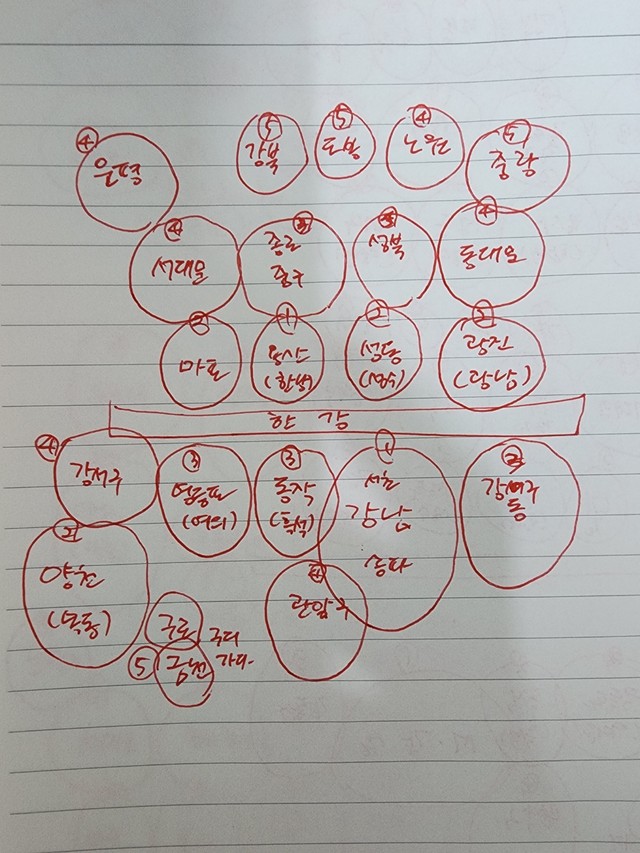 ④
은평
⑤
강북
⑤
도봉
④
노원
⑤
중랑
④
서대문
③
종로
중구
성북
④
동대문
마포
①
용산
(한남)
②
성동
(성수)
광진
(광남)
한강
④
강서구
③
영등포
(여의)
③
동작
(흑석)
①
서초
강남
송파
②
강서구
동
양천
(목동)
④
관악구
구로
구디
가디
⑤
금천